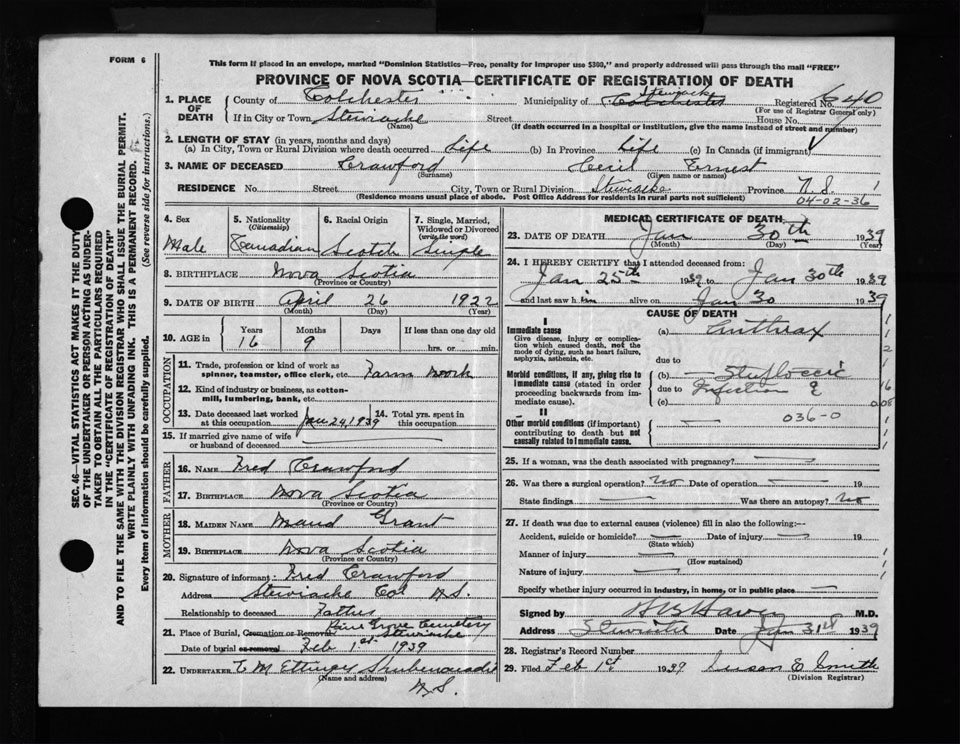 FORM 6
This form if placed in an envelope, marked "Dominion Statistics—Free, penalty for improper use $300," and properly addressed will pass through the mail "FREE"
PROVINCE OF NOVA SCOTIA—CERTIFICATE OF REGISTRATION OF DEATH
SEC. 46—VITAL STATISTICS ACT MAKES IT THE DUTY
OF THE UNDERTAKER OR PERSON ACTING AS UNDER-
TAKER TO OBTAIN ALL THE PARTICULARS REQUIRED
IN THE "CERTIFICATE OF REGISTRATION OF DEATH"
AND TO FILE THE SAME WITH THE DIVISION REGISTRAR WHO SHALL ISSUE THE BURIAL PERMIT.
WRITE PLAINLY WITH UNFADING INK. THIS IS A PERMANENT RECORD.
Every item of information should be carefully supplied. (See reverse side for instructions.)
1. PLACE OF DEATH
County of Colchester Municipality of Stewiacke Colchester Registered No. 640
(For use of Registrar General only)
If in City or Town Stewiacke Street House No.
(Name) (If death occurred in a hospital or institution, give the name instead of street and number)
2. LENGTH OF STAY (in years, months and days)
(a) In City, Town or Rural Division where death occurred Life (b) In Province Life (c) In Canada (if immigrant)
3. NAME OF DECEASED Crawford Cecil Ernest
(Surname) (Given name or names)
RESIDENCE No. Street City, Town or Rural Division Stewiacke Province N.S. 1
(Residence means usual place of abode. Post Office Address for residents in rural parts not sufficient) 04-02-36
4. Sex Male
5. Nationality (Citizenship) Canadian
6. Racial Origin Scotch
7. Single, Married, Widowed or Divorced (write the word) Single
8. BIRTHPLACE Nova Scotia
(Province or Country)
9. DATE OF BIRTH April 26 1922
(Month) (Day) (Year)
10. AGE in Years 16 Months 9 Days If less than one day old hrs. or min.
OCCUPATION
11. Trade, profession or kind of work as spinner, teamster, office clerk, etc. Farm Work
12. Kind of industry or business, as cotton-mill, lumbering, bank, etc.
13. Date deceased last worked at this occupation Jan 24, 1939 14. Total yrs. spent in this occupation
15. If married give name of wife or husband of deceased
FATHER
16. NAME Fred Crawford
17. BIRTHPLACE Nova Scotia
(Province or Country)
MOTHER
18. MAIDEN NAME Maud Grant
19. BIRTHPLACE Nova Scotia
(Province or Country)
20. Signature of informant Fred Crawford
Address Stewiacke Col N.S.
Relationship to deceased Father
21. Place of Burial, Cremation or Removal Pine Grove Cemetery Stewiacke
Date of burial or removal Feb 1st 1939
22. UNDERTAKER
(Name and address)
N.S.
MEDICAL CERTIFICATE OF DEATH
23. DATE OF DEATH Jan 30th 1939
(Month) (Day) (Year)
24. I HEREBY CERTIFY that I attended deceased from:
Jan 25th 1939 to Jan 30th 1939
and last saw h im alive on Jan 30 1939
CAUSE OF DEATH
I
Immediate cause
Give disease, injury or complication which caused death, not the mode of dying, such as heart failure, asphyxia, asthenia, etc.
(a) Anthrax
due to
Morbid conditions, if any, giving rise to immediate cause (stated in order proceeding backwards from immediate cause).
(b)
due to Infection ?
(c)
II
Other morbid conditions (if important) contributing to death but not causally related to immediate cause.
036-0
25. If a woman, was the death associated with pregnancy?
26. Was there a surgical operation? No Date of operation 19
State findings Was there an autopsy? No
27. If death was due to external causes (violence) fill in also the following:—
Accident, suicide or homicide? Date of injury 19
(State which)
Manner of injury
(How sustained)
Nature of injury
Specify whether injury occurred in industry, in home, or in public place
Signed by M.D.
Address Stewiacke Date Jan 31st 1939
28. Registrar's Record Number
29. Filed Feb 1st 1939 Susan E Smith
(Division Registrar)